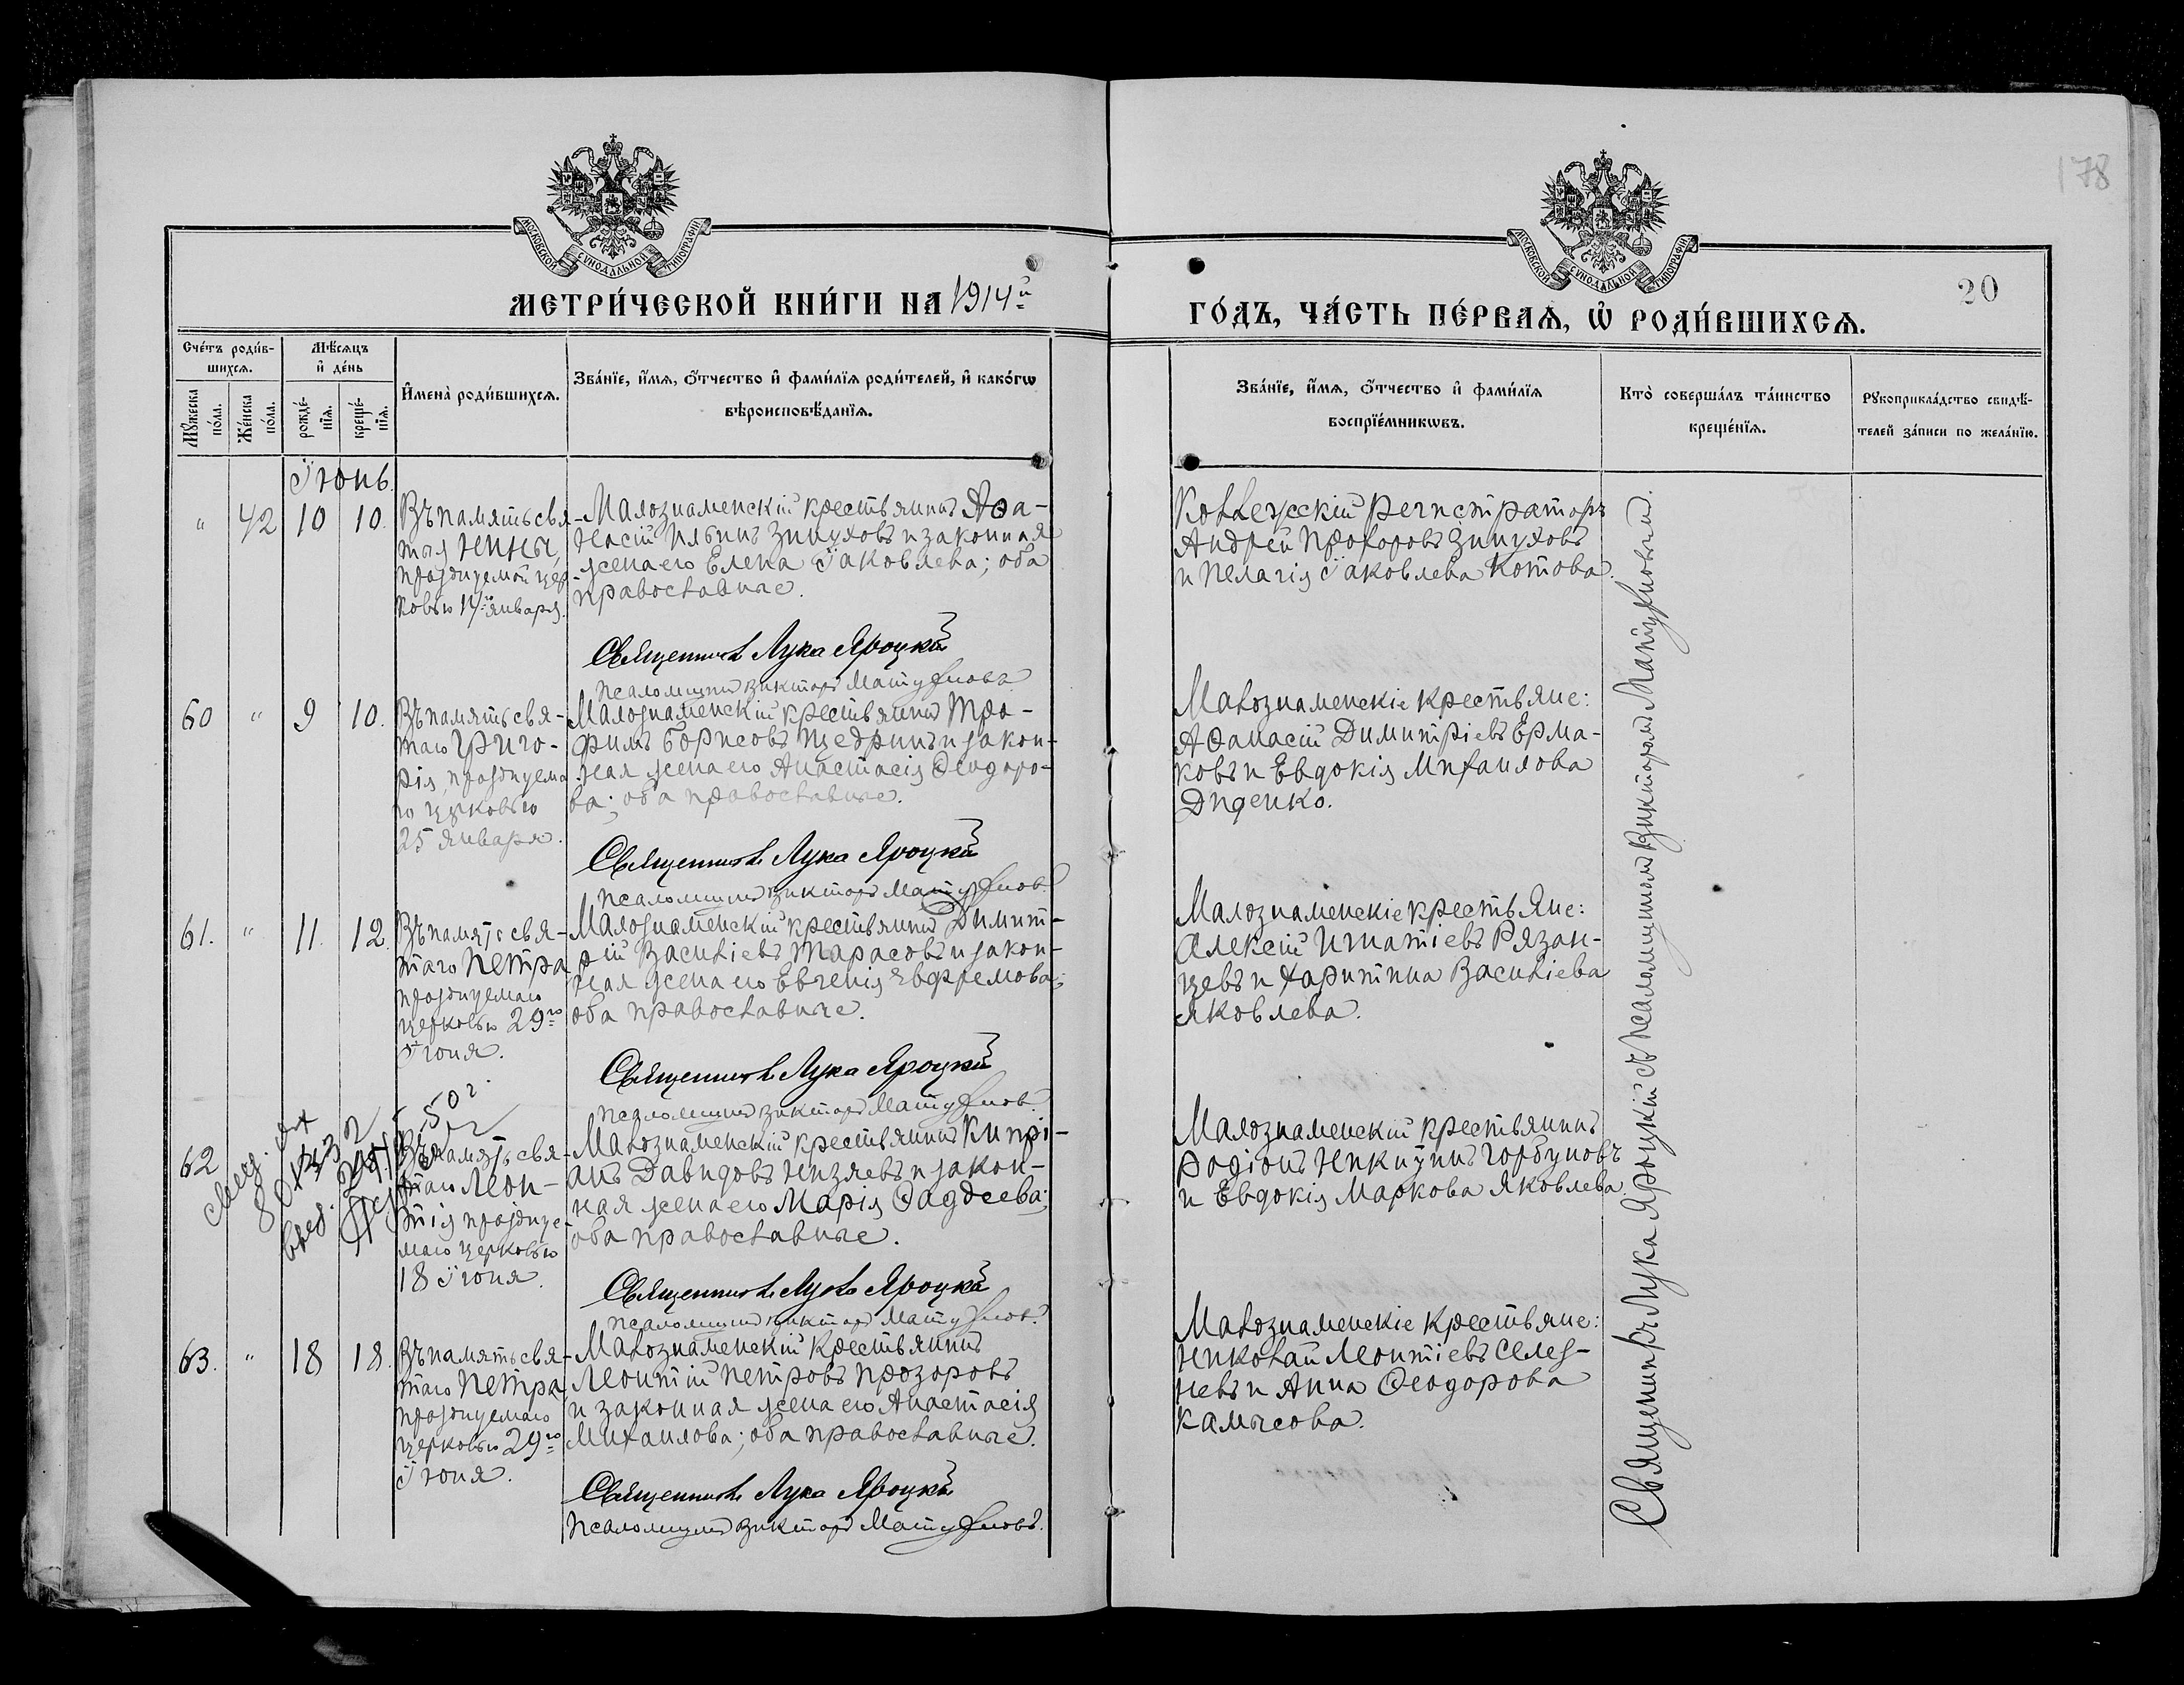 178
20
МОСКОВСКОЙ СУНОДАЛЬНОЙ ТИПОГРАФІИ
МОСКОВСКОЙ СУНОДАЛЬНОЙ ТИПОГРАФІИ
МЕТРИ́ЧЕСКОЙ КНИ́ГИ НА 1914й
ГО́ДЪ, ЧА́СТЬ ПЕ́РВАѦ, Ѡ҆ РОДИ́ВШИХСѦ.
Сче́тъ роди́в-
шихсѧ.
Мѣ́сѧцъ
и҆ де́нь
Мꙋ́жеска
по́ла.
Же́нска
по́ла.
рожде́-
нїѧ.
креще́-
нїѧ.
И҆мена̀ роди́вшихсѧ.
Зва́нїе, и҆́мѧ, ѻ҆́тчество и҆ фами́лїѧ роди́телей, и҆ како́гѡ
вѣроисповѣ́данїѧ.
Зва́нїе, и҆́мѧ, ѻ҆́тчество и҆ фами́лїѧ
воспрїе́мникѡвъ.
Кто̀ соверша́лъ та́инство
креще́нїѧ.
Рꙋкоприкла́дство свидѣ́-
телей за́писи по жела́нїю.
Іюнь.
" 42 10 10.
Въ память свя-
тыя Нины,
празднуемой цер-
ковью 14го января.
Малознаменскій крестьянинъ Аѳа-
насій Ильинъ Зинуховъ и законная
жена его Елена Іаковлева; оба
православные.
Священникъ Лука Яроцкій
Псаломщикъ Викторъ Матухновъ
Коллежскій Регистраторъ
Андрей Прохоровъ Зинуховъ
и Пелагія Іаковлева Котова.
60 " 9 10.
Въ память свя-
таго Григо-
рія, празднуема
го церковью
25 января.
Малознаменскій крестьянинъ Тро-
фимъ Борисовъ Щедринъ и закон-
ная жена его Анастасія Ѳеодоро-
ва; оба православные.
Священникъ Лука Яроцкій
Псаломщикъ Викторъ Матухновъ.
Малознаменскіе крестьяне:
Аѳанасій Димитріевъ Ерма-
ковъ и Евдокія Михаилова
Диденко.
61. " 11. 12.
Въ память свя-
таго Петра
празднуемаго
церковью 29го
Іюня.
Малознаменскій крестьянинъ Димит-
рій Василіевъ Тарасовъ и закон-
ная жена его Евгенія Евфремова;
оба православные.
Священникъ Лука Яроцкій
Псаломщикъ Викторъ Матухновъ.
Малознаменскіе крестьяне:
Алексій Игнатіевъ Рязан-
цевъ и Харитина Василіева
Яковлева.
62
Въ память свя-
таго Леон-
тія празднуе-
маго церковью
18 Іюня.
Малознаменскій крестьянинъ Кипрі-
анъ Давидовъ Низяевъ и закон-
ная жена его Марія Ѳаддеева;
оба православные.
Священникъ Лука Яроцкій
Псаломщикъ Викторъ Матухновъ.
Малознаменскій крестьянинъ
Родіонъ Никитинъ Горбуновъ
и Евдокія Маркова Яковлева.
63. " 18 18.
Въ память свя-
таго Петра,
празднуемаго
церковью 29го
Іюня.
Малознаменскій крестьянинъ
Леонтій Петровъ Прозоровъ
и законная жена его Анастасія
Михаилова; оба православные.
Священникъ Лука Яроцкій
Псаломщикъ Викторъ Матухновъ.
Малознаменскіе крестьяне:
Николай Леонтіевъ Селез-
невъ и Анна Ѳеодорова
Камысова.
Священникъ Лука Яроцкій съ Псаломщикомъ Викторомъ Матухновымъ.